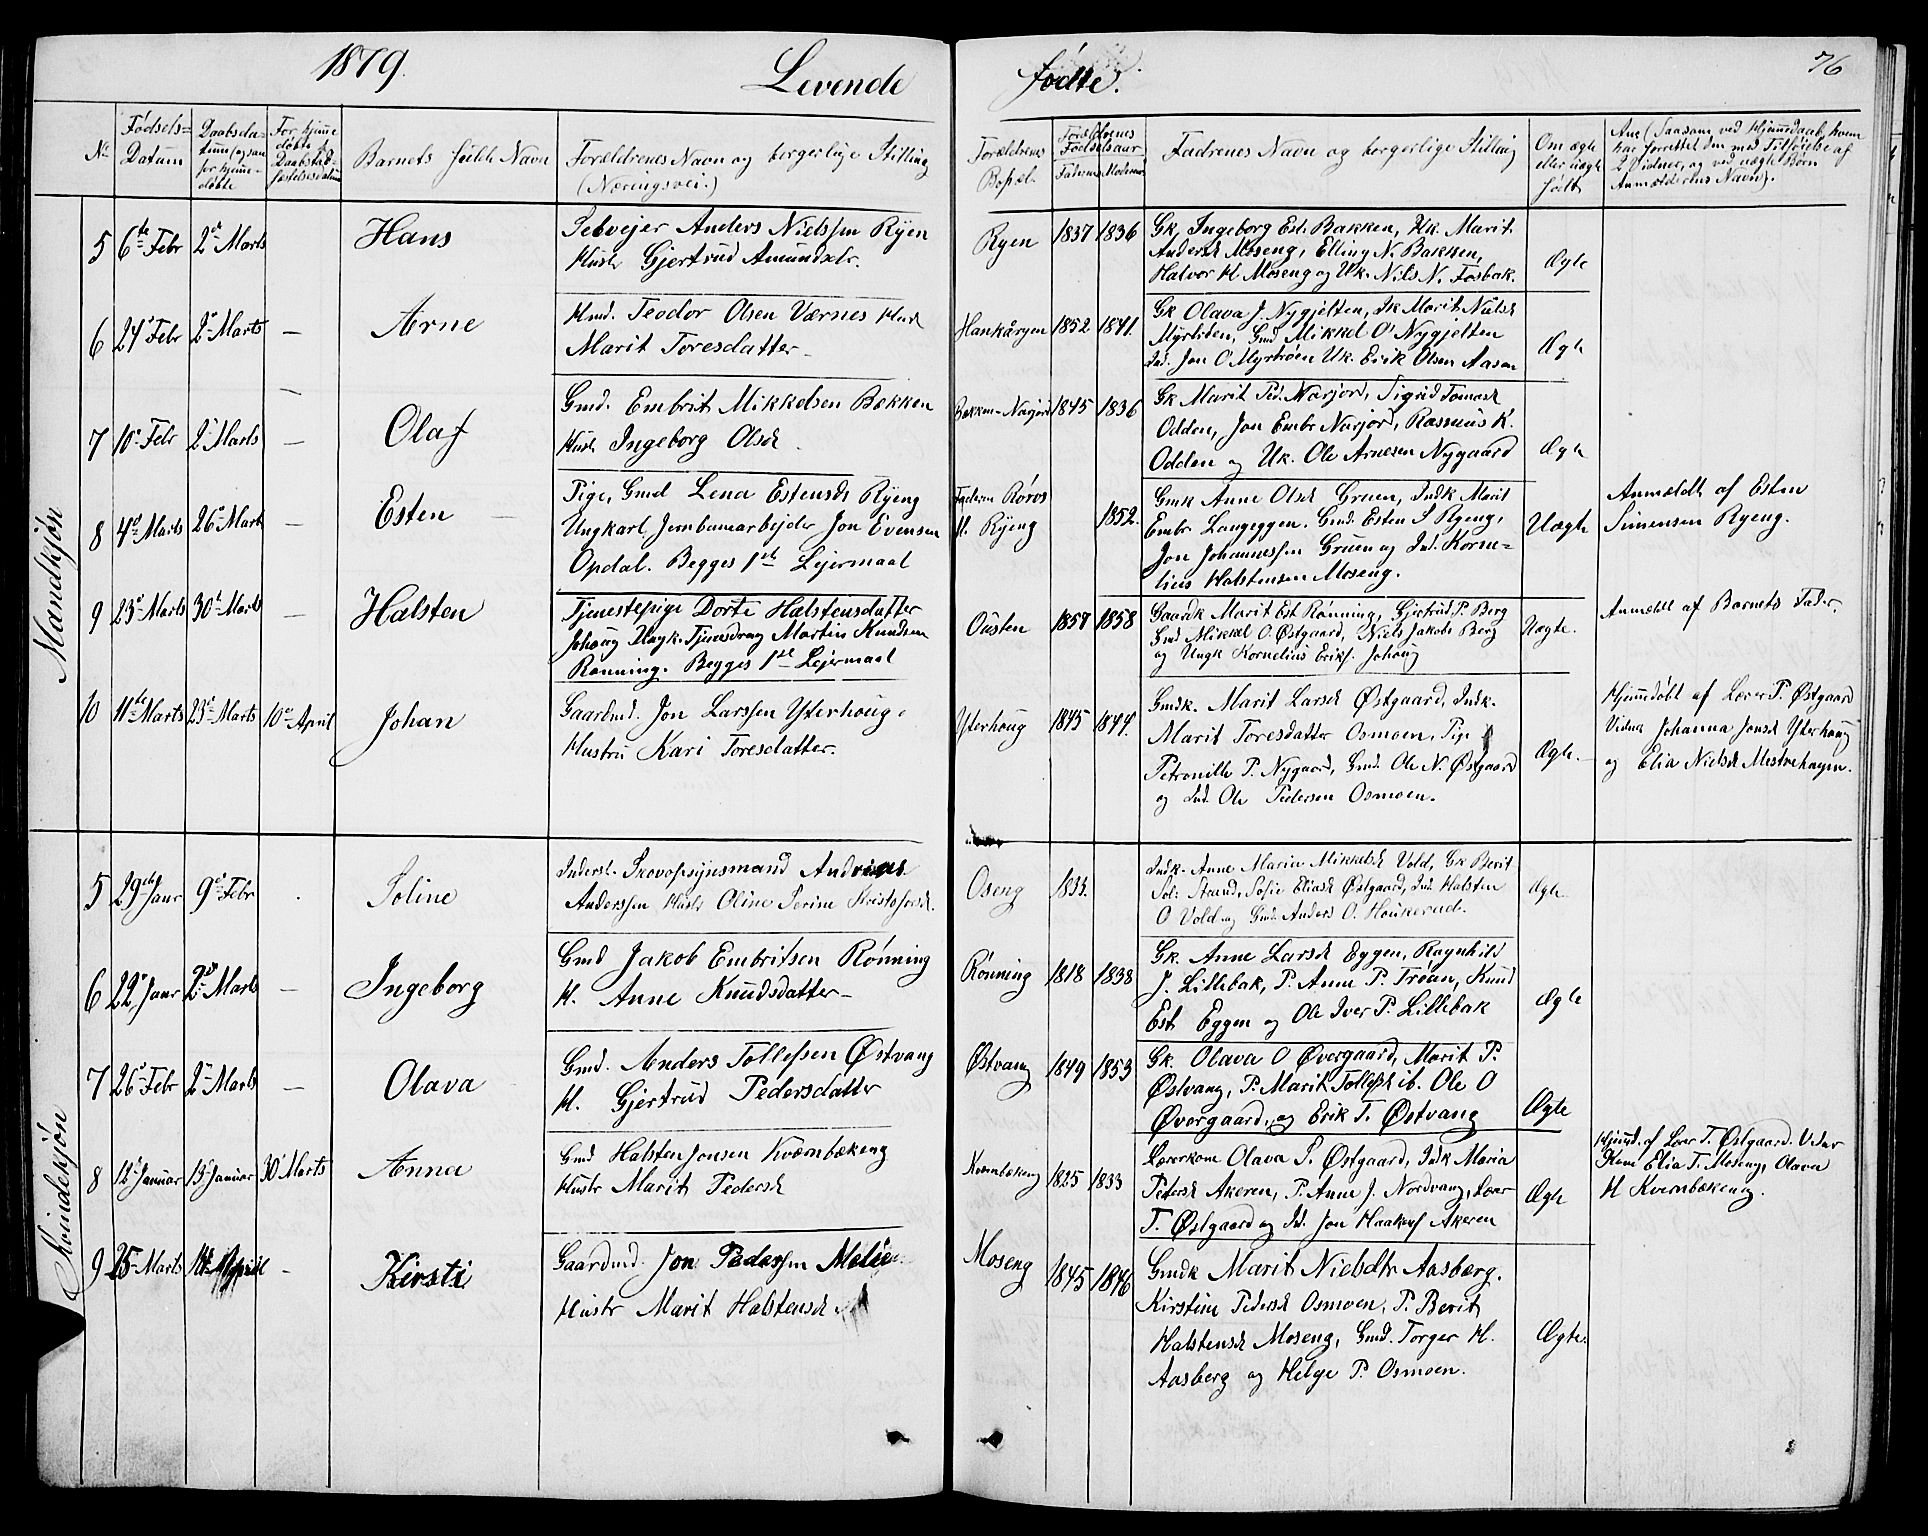 1879. Levende fødte. 76
No
Fødsels-Datum
Daabsdatum
Barnets fulde Navn
Forældrenes Navn og borgerlige Stilling
(Næringsvei.)
Forældrenes Bopæl.
Forældrenes Fødselsaar
Faderens Moderens
Fadrenes Navn og borgerlige Stilling
Om ægte eller uægte født
Mandkjøn
5 6te Febr 2d Marts Hans
Anders Nielssen Ryen
Hustr Gjertrud Amundsdtr.
Ryen 1837 1836
Gk. Ingeborg Est. Bakken, Uk. Marit
Andersd Moseng, Elling N. Bakken,
Halvor H. Moseng og Uk. Nils N. Fosbak.
Ægte
6 24d Febr 2d Marts — Arne
Hmd. Teodor Olsen Værnes Hust
Marit Toresdatter
1852 1841.
Gk Olava J. Nygjelten, Ik Marit Nilsd
Myrliden, Gmd Mikkel O. Nygjelten
Ind. Jon O Myrmoen Uk. Erik Olsen Aasen
Ægte
7 10d Febr 2d Marts — Olaf
Gmd. Embrit Mikkelsen Bækken
Hustr Ingeborg Olsd.
Bækken-Narjord 1845 1836
Gk Marit Ped. Narjord, Sigrid Tomasd
Odden, Jon Embr Narjord, Rasmus K.
Odden og Uk. Ole Arnesen Nygaard
Ægte
8 4d Marts 26d Marts — Esten
Pige, Gmd Lena Estensdr Ryeng
Ungkarl Jernbanearbejder Jon Evensen
Opdal. Begges 1ste Lejermaal
Faderen Røros
M. Ryeng 1852.
Gmk Anne Olsd Gruen, Indk Marit
Embr Langeggen. Gmd. Esten S Ryeng,
Jon Johannessen Gruen og Ind. Korne-
lius Halstensen Moseng.
Uægte
Anmældt af Esten
Simensen Ryeng.
9 23d Marts 30d Marts — Halsten
Tjenestepige Dorte Halstensdatter
Johaug Ungk. Tjenedreng Martin Knudsen
Rønning. Begges 1ste Lejermaal
Ousten 1857 1858
Gaardk Marit Est Rønning, Gjertrud P. Berg
Gmd Mikkel O. Østgaard, Niels Jakobs Berg
og Ungk Kornelius Eriks. Johaug
Uægte.
Anmeldt af Barnets Fader.
10 11te Marts 23d Marts 10d April Johan
Gaardmd. Jon Larssen Yterhoug.
Hustru Kari Toresdatter.
Yterhoug 1845 1844.
Gmdk. Marit Larsd Østgaard, Indk.
Marit Toresdatter Osmoen, Pige
Petronille P. Nygaard, Gmd. Ole N. Østgaard
og Ind. Ole Pedersen Osmoen.
Ægte.
Hjemmedøbt af Lærer T. Østgaard
Vidner Johanna Jonsd Yterhoug
og Elia Nielsd
Kvindekjøn
5 29de Janr 9d Febr . Soline
Inderst. Skovopsynsmand Andreas
Anderssen Hustr Oline Serine Kristofersd.
Oseng 1833.
Indk. Anne Maria Mikkelsd Vold, Gk Berit
Strand, Sofie Eliasd Østgaard, Ind. Halsten
O Vold og Gmd. Anders O. Houkerud.
Ægte
6 22d Janr 2d Marts — Ingeborg
Gmd Jakob Embritsen Rønning
H. Anne Knudsdatter
Rønning 1818 1838
Gk. Anne Larsd Eggen, Ragnhild
J. Lillebak, P. Anne P. Trøan, Knud
Est Eggen og Ole Iver P. Lillebak
Ægte
7 26d Febr 2d Marts — Olava
Gmd. Anders Tollefsen Østvang
H. Gjertrud Pedersdatter
Østvang 1849 1853
Gk. Olava O Øvergaard, Marit P.
Østvang, P. Marit Tollefsd ib. Ole O
Øvergaard, og Erik T. Østvang
Ægte
8 12d Januar 13d Januar 30d Marts Anna
Gmd Halsten Jonsen Kværnbækeng
Hustr Marit Pedersd
Kværnbækeng 1825 1833
Lærerkone Olava S. Østgaard, Indk Maria
Pedersd Akeren, P. Anne J. Nordvang, Lærer
T. Østgaard og Id. Jon Haakens Akeren
Ægte
Hjemmd. af Lærer T. Østgaard. Vidner
Kone Elia T. Moseng, Olava
H Kvernbækeng.
9 25d Marts April — Kirsti
Gaardmd. Jon Pederssen
Hustr Marit Halstensd
Moseng 1845 1846
Gmdk Marit Nielsdtr Aasberg.
Kirstine Pedersd Osmoen, P. Berit
Halstensd Moseng, Gmd. Torger H.
Aasberg og Helge P. Osmoen.
Ægte.